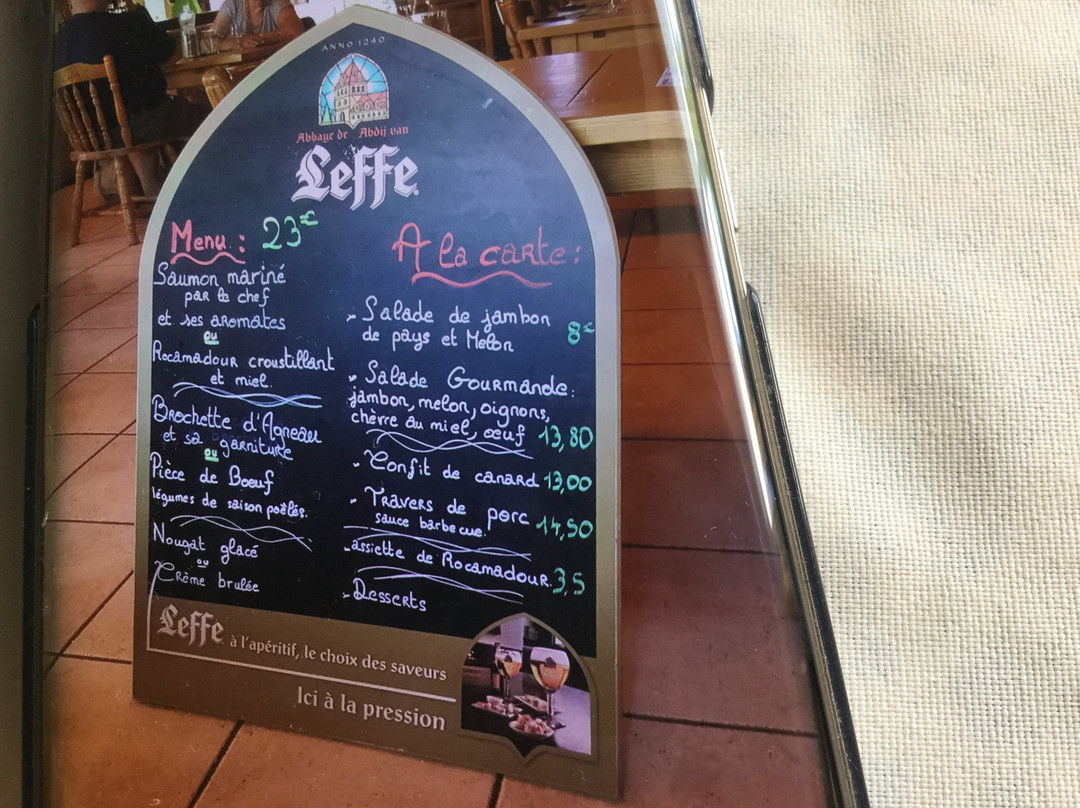 ANNO 1240
Abbaye de Abdij van
Leffe
Menu : 23€
Saumon mariné
par le chef
et ses aromates
ou
Rocamadour croustillant
et miel.
Brochette d'Agneau
et sa garniture
ou
Pièce de Boeuf
légumes de saison poêlés.
Nougat glacé
ou
Crème brulée
A la carte :
- Salade de jambon
de pays et Melon 8€
- Salade Gourmande :
jambon, melon, oignons,
chèvre au miel, œuf 13,80
- Confit de canard 13,00
- Travers de porc
sauce barbecue. 14,50
- assiette de Rocamadour. 3,5
- Desserts
Leffe à l'apéritif, le choix des saveurs
Ici à la pression